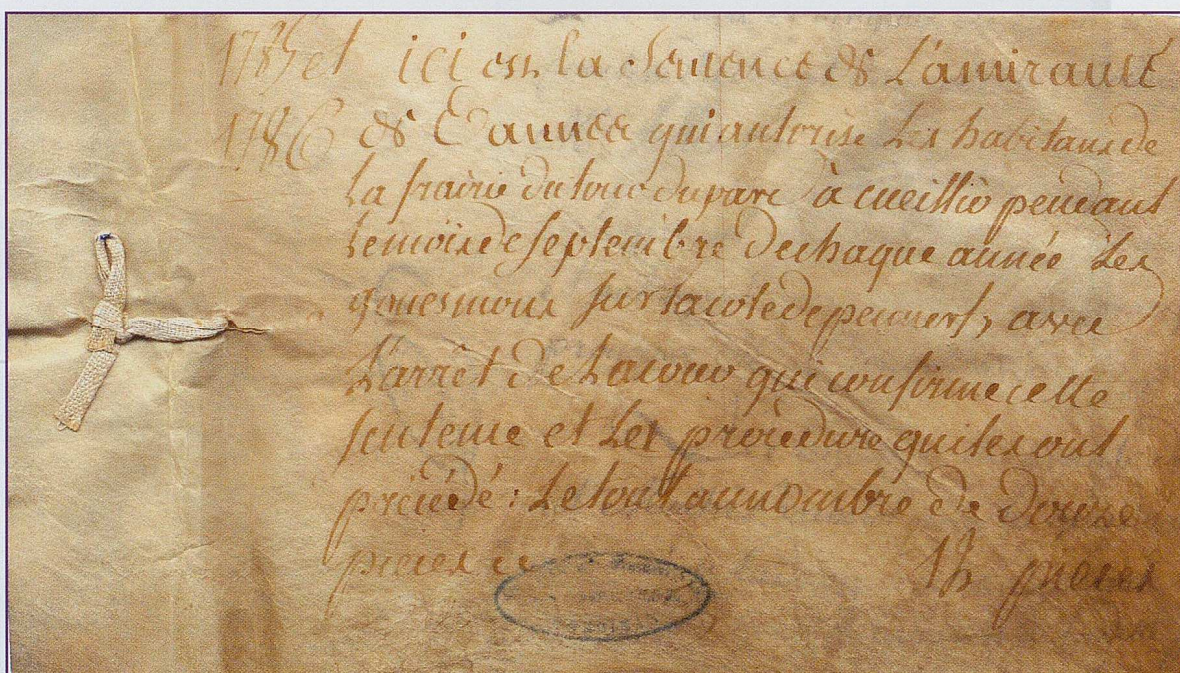 1785 et ici est la Sentence de L'amirauté
1786 de Vannes qui autorise Les habitans de
la frairie du tour du parc à cueillir pendant
le mois de septembre de chaque année Les
gouesmons sur la cote de penvers, avec
L'arrêt de La cour qui confirme cette
sentence et Les procedure qui les ont
précédé : Le tout au nombre de douze
pieces cy 12 pieces